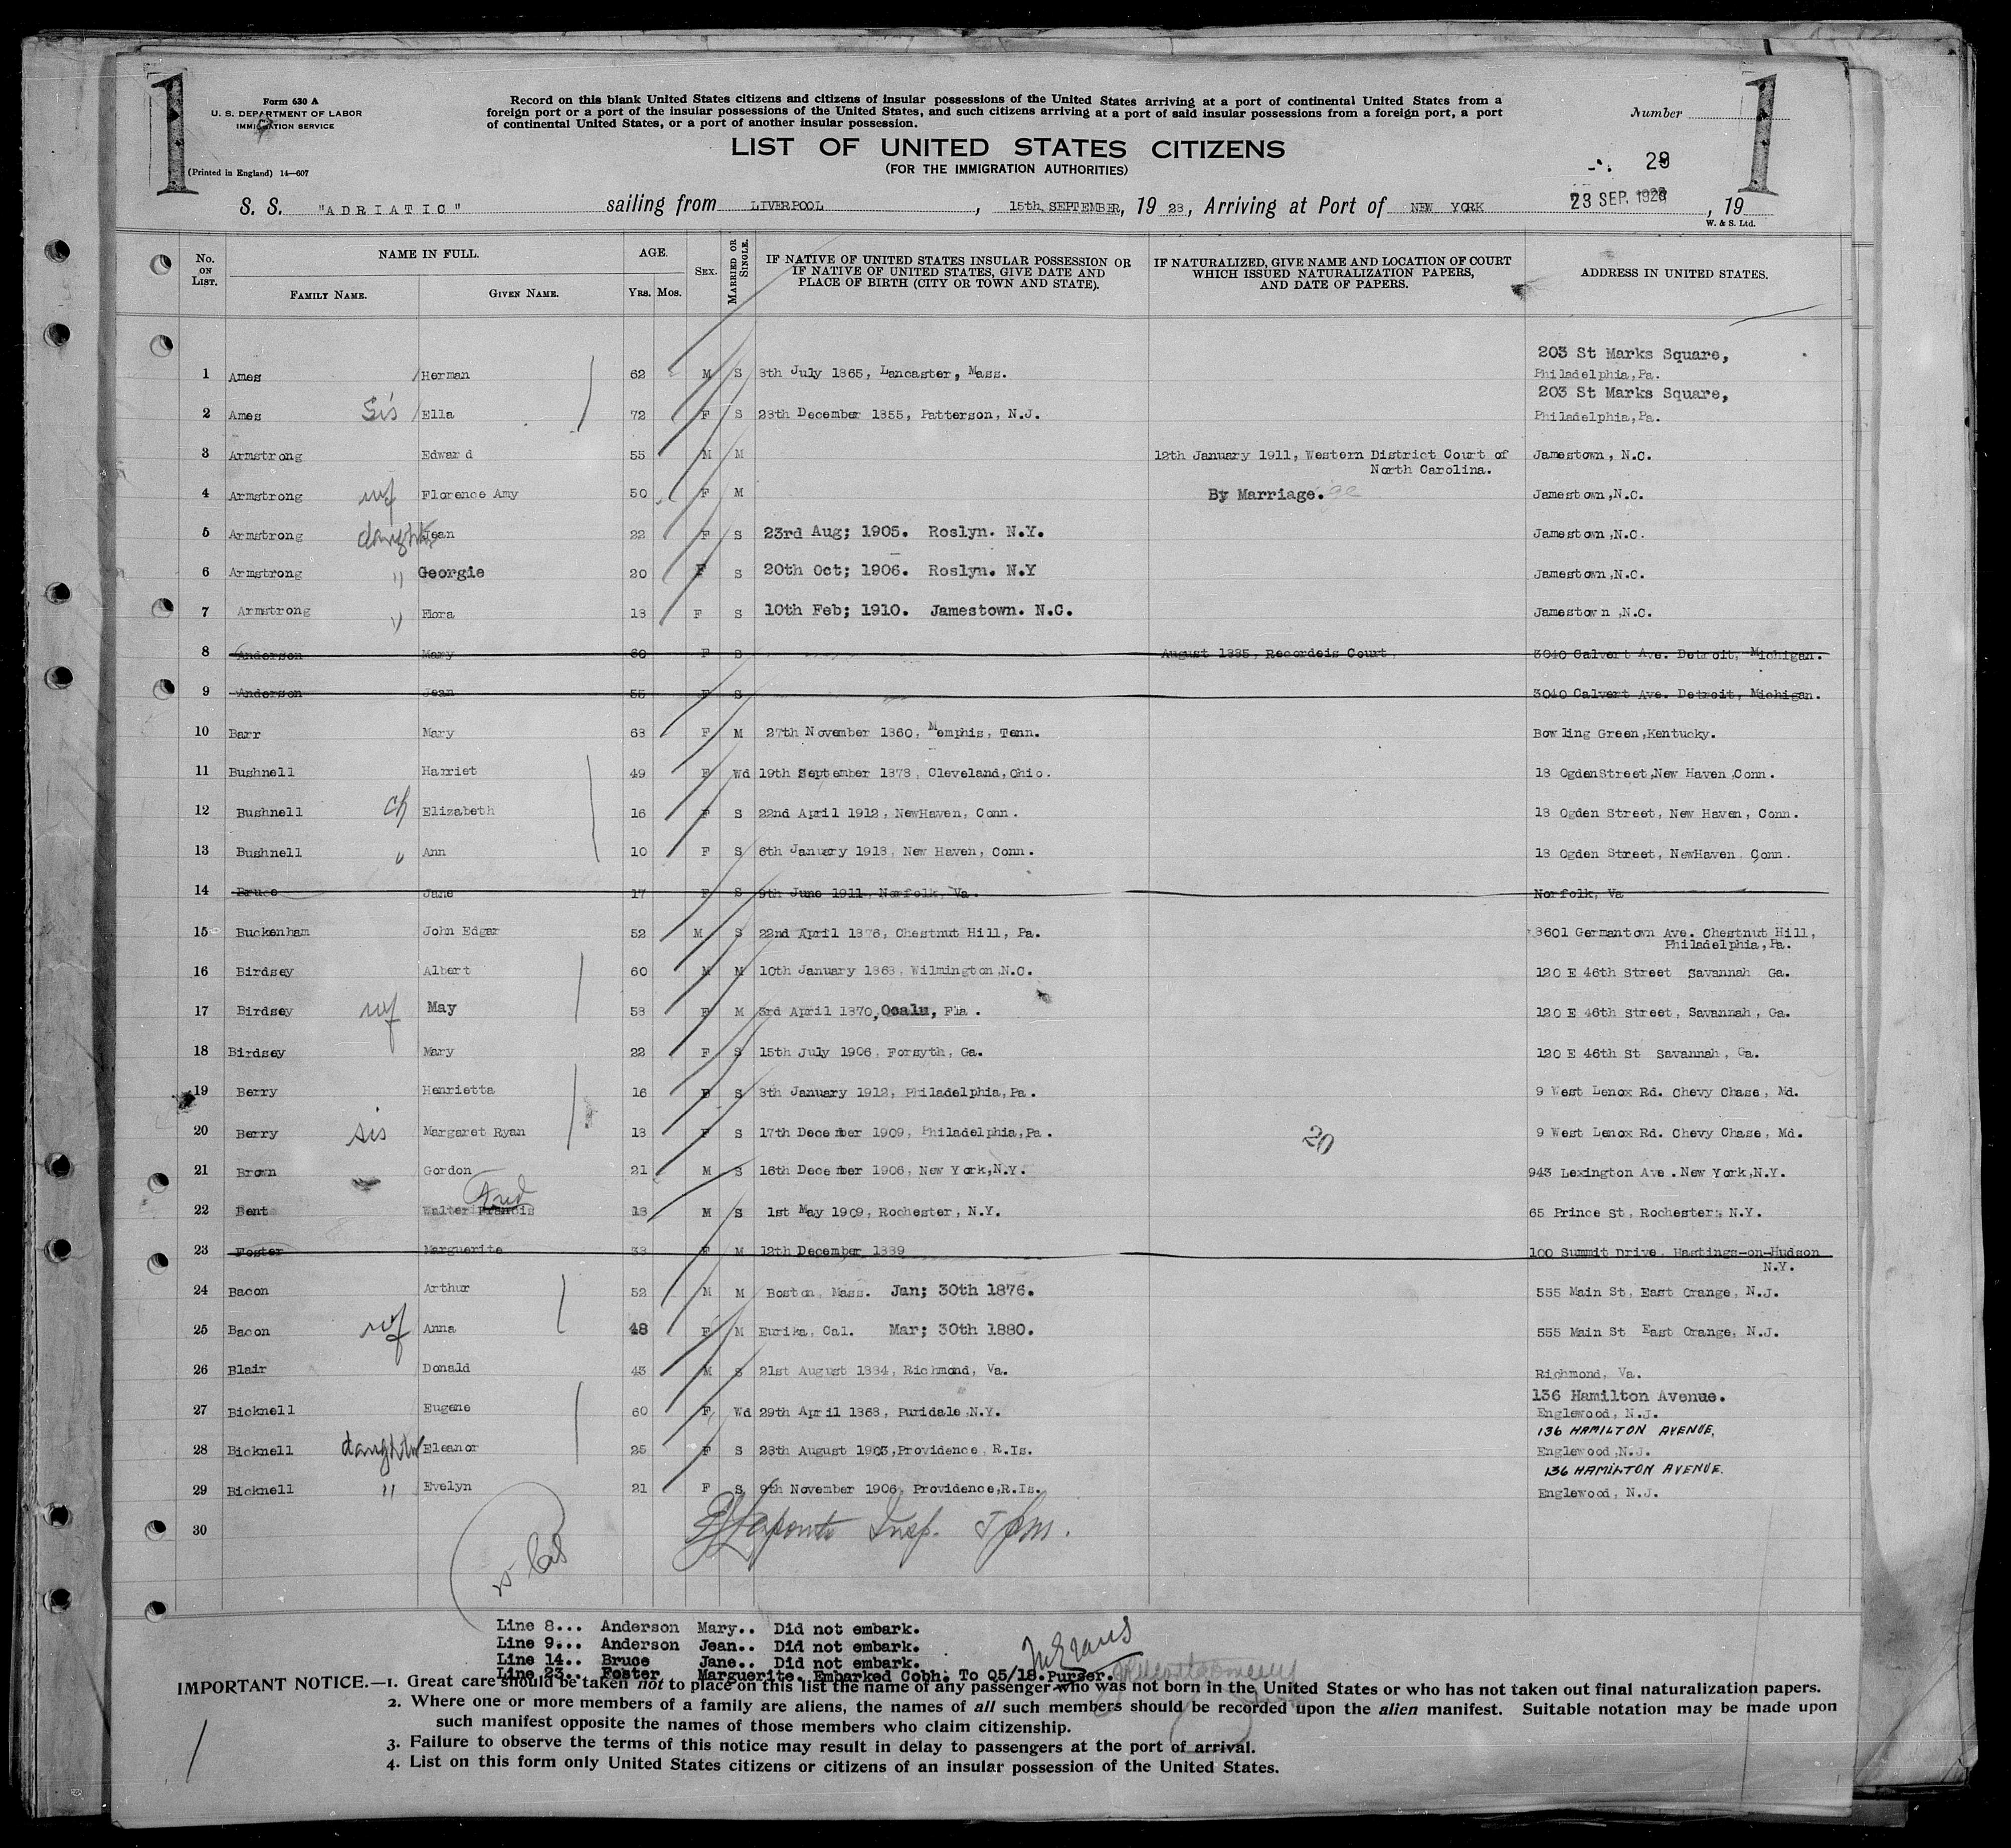 1
1
Form 630 A
U. S. DEPARTMENT OF LABOR
IMMIGRATION SERVICE
(Printed in England) 14—607
Record on this blank United States citizens and citizens of insular possessions of the United States arriving at a port of continental United States from a
foreign port or a port of the insular possessions of the United States, and such citizens arriving at a port of said insular possessions from a foreign port, a port
of continental United States, or a port of another insular possession.
Number
LIST OF UNITED STATES CITIZENS
(FOR THE IMMIGRATION AUTHORITIES)
S. S. "ADRIATIC" sailing from LIVERPOOL, 15th, SEPTEMBER, 19 28, Arriving at Port of NEW YORK 23 SEP. 1928, 19
W. & S. Ltd.
No. ON LIST. NAME IN FULL. FAMILY NAME. GIVEN NAME. AGE. Yrs. Mos. SEX. MARRIED OR SINGLE. IF NATIVE OF UNITED STATES INSULAR POSSESSION OR IF NATIVE OF UNITED STATES, GIVE DATE AND PLACE OF BIRTH (CITY OR TOWN AND STATE). IF NATURALIZED, GIVE NAME AND LOCATION OF COURT WHICH ISSUED NATURALIZATION PAPERS, AND DATE OF PAPERS. ADDRESS IN UNITED STATES.
203 St Marks Square,
1 Ames Herman 62 M S 8th July 1865, Lancaster, Mass. Philadelphia,Pa.
203 St Marks Square,
2 Ames Sis Ella 72 F S 28th December 1855, Patterson, N.J. Philadelphia,Pa.
3 Armstrong Edward 55 M M 12th January 1911, Western District Court of Jamestown, N.C.
North Carolina.
4 Armstrong wf Florence Amy 50 F M By Marriage. Jamestown,N.C.
5 Armstrong daughter Jean 22 F S 23rd Aug; 1905. Roslyn. N.Y. Jamestown,N.C.
6 Armstrong " Georgie 20 F S 20th Oct; 1906. Roslyn. N.Y Jamestown,N.C.
7 Armstrong " Flora 18 F S 10th Feb; 1910. Jamestown. N.C. Jamestown,N.C.
8 Anderson Mary 60 F S August 1885, Recordeis Court, 3040 Calvert Ave. Detroit, Michigan.
9 Anderson Jean 55 F S 3040 Calvert Ave. Detroit, Michigan.
10 Barr Mary 68 F M 27th November 1860, Memphis, Tenn. Bowling Green,Kentucky.
11 Bushnell Harriet 49 F Wd 19th September 1878, Cleveland,Ohio. 18 OgdenStreet,New Haven,Conn.
12 Bushnell ch Elizabeth 16 F S 22nd April 1912, NewHaven, Conn. 18 Ogden Street, New Haven, Conn.
13 Bushnell " Ann 10 F S 6th January 1918, New Haven, Conn. 18 Ogden Street, NewHaven, Conn.
14 Bruce Jane 17 F S 9th June 1911, Norfolk, Va. Norfolk, Va
15 Buckenham John Edgar 52 M S 22nd April 1876, Chestnut Hill, Pa. 8601 Germantown Ave. Chestnut Hill,
Philadelphia,Pa.
16 Birdsey Albert 60 M M 10th January 1868, Wilmington,N.C. 120 E 46th Street Savannah Ga.
17 Birdsey wf May 58 F M 3rd April 1870,Ocalu, Fla. 120 E 46th Street, Savannah, Ga.
18 Birdsey Mary 22 F S 15th July 1906, Forsyth, Ga. 120 E 46th St Savannah, Ga.
19 Berry Henrietta 16 F S 8th January 1912, Philadelphia,Pa. 9 West Lenox Rd. Chevy Chase, Md.
20 Berry sis Margaret Ryan 18 F S 17th December 1909, Philadelphia,Pa. 20 9 West Lenox Rd. Chevy Chase, Md.
21 Brown Gordon 21 M S 16th December 1906, New York,N.Y. 943 Lexington Ave. New York,N.Y.
Fred
22 Bent Walter Francis 18 M S 1st May 1909, Rochester, N.Y. 65 Prince St, Rochester, N.Y.
23 Foster Marguerite 38 F M 12th December 1889 100 Summit Drive, Hastings-on-Hudson
N.Y.
24 Bacon Arthur 52 M M Boston, Mass. Jan; 30th 1876. 555 Main St, East Orange, N.J.
25 Bacon wf Anna 48 F M Eurika, Cal. Mar; 30th 1880. 555 Main St East Orange, N.J.
26 Blair Donald 43 M S 21st August 1884, Richmond, Va. Richmond, Va.
136 Hamilton Avenue.
27 Bicknell Eugene 60 F Wd 29th April 1868, Puridale,N.Y. Englewood, N.J.
136 HAMILTON AVENUE,
28 Bicknell daughter Eleanor 25 F S 28th August 1903,Providence, R.Is. Englewood,N.J.
136 HAMILTON AVENUE.
29 Bicknell " Evelyn 21 F S 9th November 1906, Providence,R.Is. Englewood, N.J.
30
Insp.
Line 8... Anderson Mary.. Did not embark.
Line 9... Anderson Jean.. Did not embark.
Line 14.. Bruce Jane.. Did not embark.
Line 23.. Foster Marguerite. Embarked Cobh. To Q5/18. Purser.
IMPORTANT NOTICE.—1. Great care should be taken not to place on this list the name of any passenger who was not born in the United States or who has not taken out final naturalization papers.
2. Where one or more members of a family are aliens, the names of all such members should be recorded upon the alien manifest. Suitable notation may be made upon
such manifest opposite the names of those members who claim citizenship.
3. Failure to observe the terms of this notice may result in delay to passengers at the port of arrival.
4. List on this form only United States citizens or citizens of an insular possession of the United States.